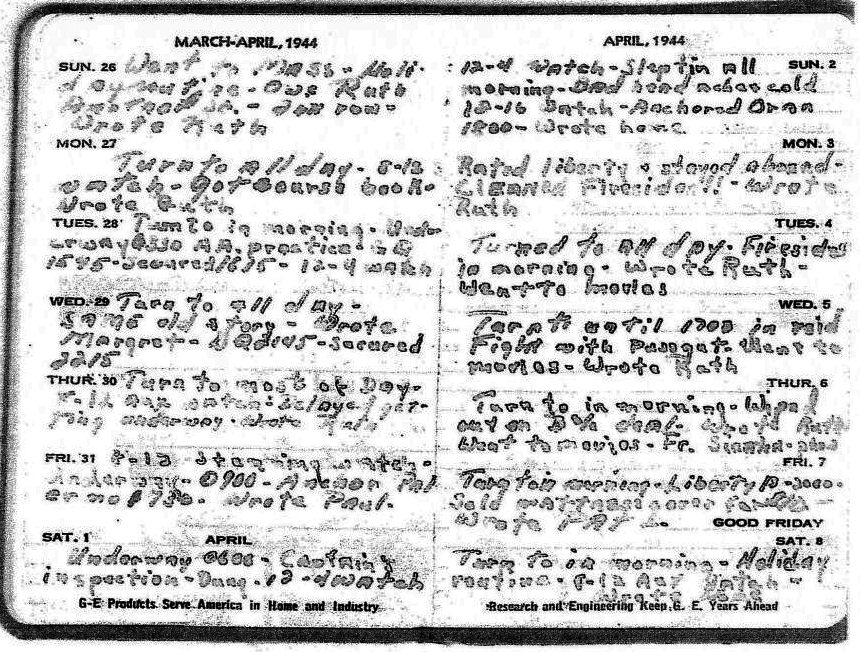 MARCH-APRIL, 1944
SUN. 26 Went to Mass - Holi-
day routine - Ruth
Wrote Ruth
MON. 27
Turn to all day - 8-12
watch - Got Course book -
Wrote Ruth
TUES. 28 Turn to in morning - Und-
erway 0830 A.A. practice - GQ
1545 - secured 1615 - 12-4 watch
WED. 29 Turn to all day -
same old story - Wrote
Margret - secured
2215
THUR. 30 Turn to most of Day -
8-12 watch - Delayed get-
ting underway - Wrote Ruth
FRI. 31 8-12 Steaming watch -
Underway - 0900 - Anchor
1730 - Wrote Paul.
SAT. 1 APRIL
Underway 0600 - Captain's
inspection - 12-4 Watch
G-E Products Serve America in Home and Industry
APRIL, 1944
12-4 Watch - Slept in all SUN. 2
morning - Bad head ache & cold
12-16 Watch - Anchored Oran
1800 - Wrote home
MON. 3
Rated liberty & stayed aboard -
Cleaned Firesides!! - Wrote
Ruth
TUES. 4
Turned to all day - Firesides
in morning - Wrote Ruth -
Went to movies
WED. 5
Turn to until 1700 in
Fight with Went to
movies - Wrote Ruth
THUR. 6
Turn to in morning - Wiped
out on deal - Wrote Ruth
Went to movies - Fr.
FRI. 7
Turn to in morning - Liberty
Sold mattress cover for
Wrote GOOD FRIDAY
SAT. 8
Turn to in morning - Holiday
routine - 8-12 Watch -
Wrote
Research and Engineering Keep G. E. Years Ahead